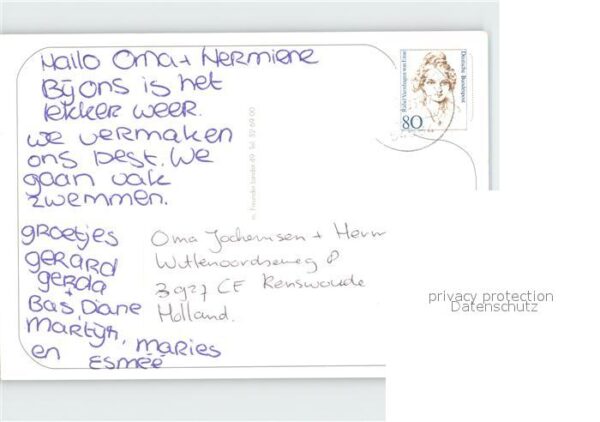 Hallo Oma + Hermiene
Bij ons is het
lekker weer.
we vermaken
ons best. We
gaan vak
zwemmen.
groetjes
gerard
gerda
+
Bas, Diane
Martijn, Maries
en Esmée
Oma Jochemsen + Herm
Wittenoordseweg 8
3927 CE Renswoude
Holland.
Deutsche Bundespost
Rahel Varnhagen von Ense
80
privacy protection
Datenschutz